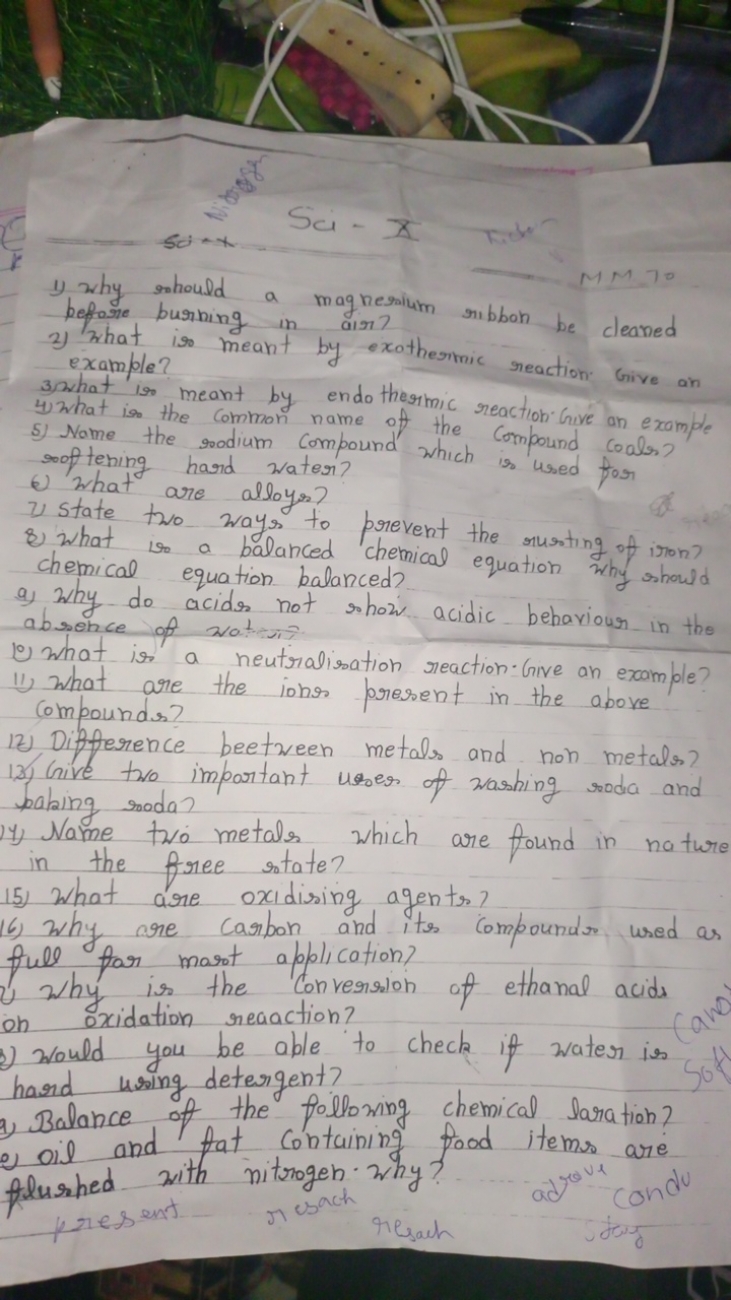 Nitrogen
Sci - X
Sci - X
MM. 70
1) why should a magnesium ribbon be cleaned
before burning in air?
2) what is meant by exothermic reaction. Give an
example?
3) what is meant by endothermic reaction. Give an example
4) what is the common name of the compound
5) Name the sodium compound which is used for
softening hard water?
6) what are alloys?
7) state two ways to prevent the rusting of iron?
8) what is a balanced chemical equation why should
chemical equation balanced?
9) why do acids not show acidic behaviour in the
absence of water?
10) what is a neutralisation reaction. Give an example?
11) what are the ions present in the above
compounds?
12) Difference beetween metals and non metals?
13) Give two important uses of washing soda and
baking soda?
14) Name two metals which are found in nature
in the free state?
15) what are oxidising agents?
16) why are carbon and its compounds used as
full for mast application?
) why is the conversion of ethanal acids
on oxidation reaaction?
) would you be able to check if water is
hard using detergent?
) Balance of the following chemical
) oil and fat containing food items are
flushed with nitrogen. why?
present resach resach condu
stay